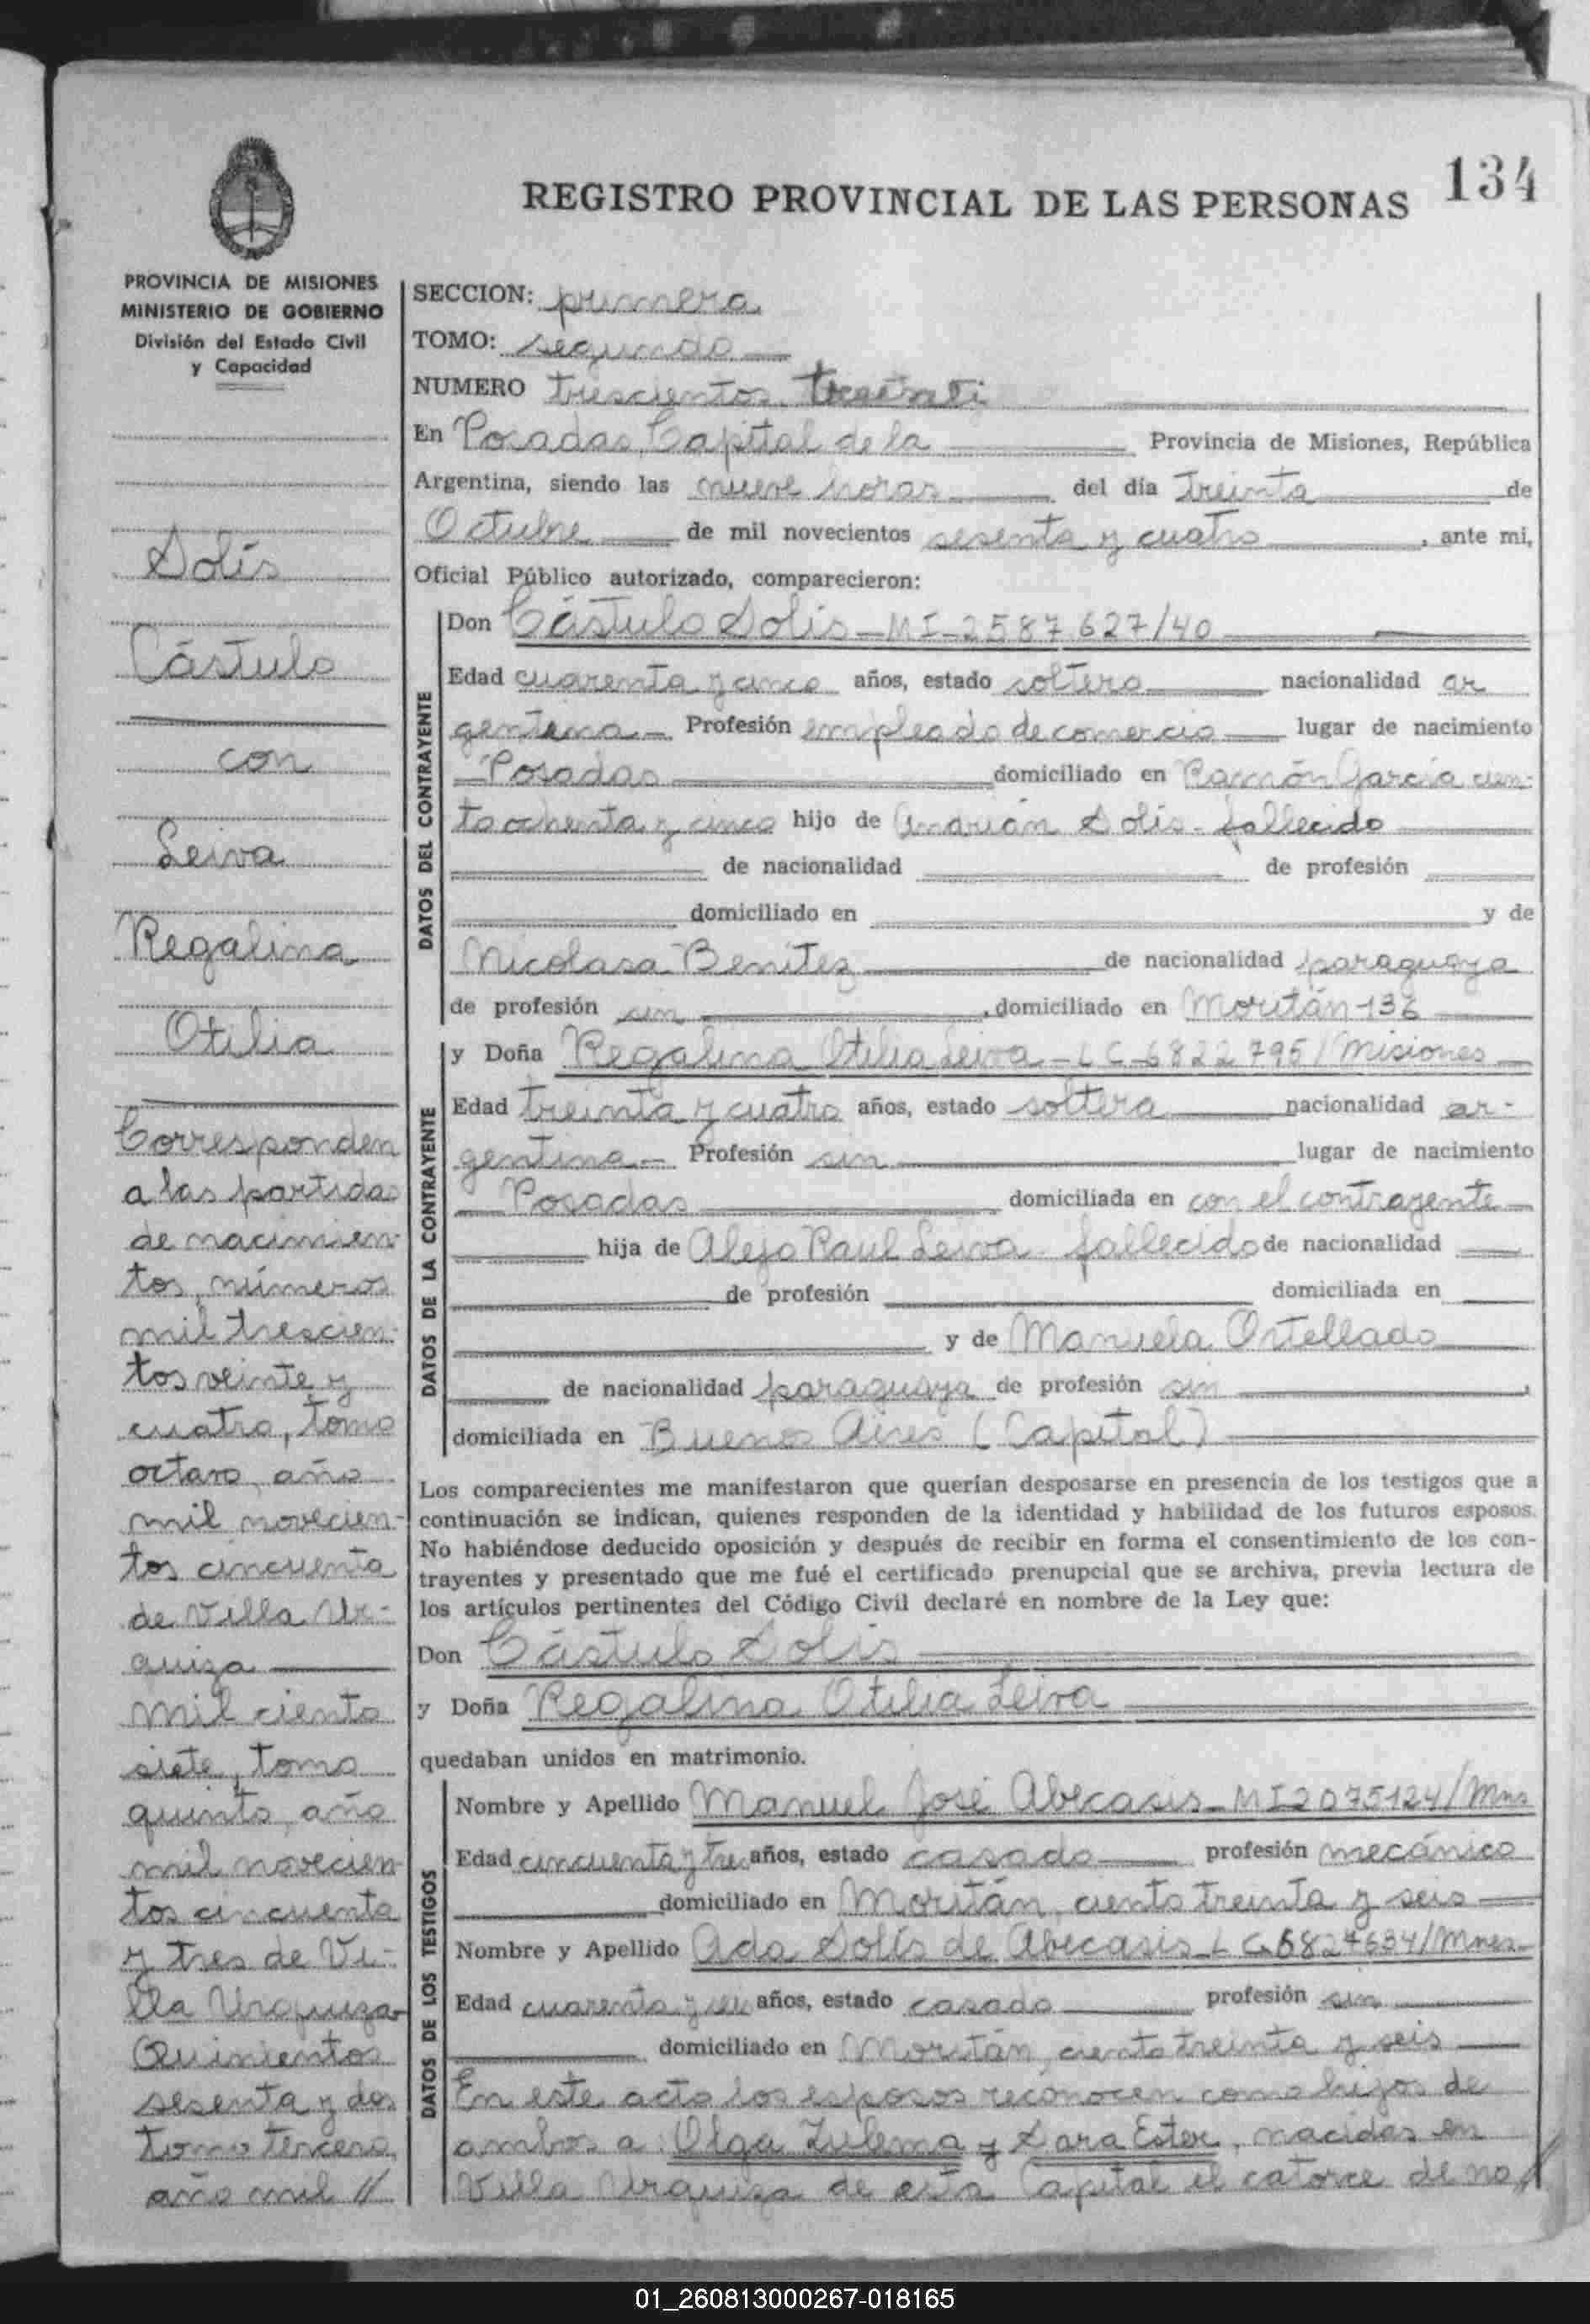 134
REGISTRO PROVINCIAL DE LAS PERSONAS
PROVINCIA DE MISIONES
MINISTERIO DE GOBIERNO
División del Estado Civil
y Capacidad
Solís
Cástulo
con
Leiva
Regalina
Otilia
Corresponden
a las partidas
de nacimien-
tos, números
mil trescien-
tos veinte y
cuatro, tomo
octavo, año
mil novecien-
tos cincuenta
de Villa Ur-
quiza
mil ciento
siete, tomo
quinto, año
mil novecien
tos cincuenta
y tres de Vi-
lla Urquiza-
Quinientos
sesenta y dos
tomo tercero,
año mil //
SECCION: primera
TOMO: segundo
NUMERO trescientos
En Posadas, Capital de la Provincia de Misiones, República
Argentina, siendo las nueve horas del día treinta de
Octubre de mil novecientos sesenta y cuatro, ante mi,
Oficial Público autorizado, comparecieron:
DATOS DEL CONTRAYENTE
Don Cástulo Solís - MI-2587627/40
Edad cuarenta y cinco años, estado soltero nacionalidad ar
gentina - Profesión empleado de comercio lugar de nacimiento
Posadas domiciliado en Ramón García cien-
to ochenta y cinco hijo de Solís - fallecido
de nacionalidad de profesión
domiciliado en y de
Nicolasa Benítez de nacionalidad paraguaya
de profesión sin, domiciliado en Moritán - 136
DATOS DE LA CONTRAYENTE
y Doña Regalina Otilia Leiva - LC-6822795/Misiones
Edad treinta y cuatro años, estado soltera nacionalidad ar-
gentina - Profesión sin lugar de nacimiento
Posadas domiciliada en con el contrayente
hija de Alejo Raul Leiva - fallecido de nacionalidad
de profesión domiciliada en
y de Manuela Ortellado
de nacionalidad paraguaya de profesión sin,
domiciliada en Buenos Aires (Capital)
Los comparecientes me manifestaron que querían desposarse en presencia de los testigos que a
continuación se indican, quienes responden de la identidad y habilidad de los futuros esposos.
No habiéndose deducido oposición y después de recibir en forma el consentimiento de los con-
trayentes y presentado que me fué el certificado prenupcial que se archiva, previa lectura de
los artículos pertinentes del Código Civil declaré en nombre de la Ley que:
Don Cástulo Solís
y Doña Regalina Otilia Leiva
quedaban unidos en matrimonio.
DATOS DE LOS TESTIGOS
Nombre y Apellido Manuel José Abecasis - MI 2075124/Mns
Edad cincuenta y tres años, estado casado profesión mecánico
domiciliado en Moritán, ciento treinta y seis
Nombre y Apellido Ada Solís de Abecasis - LC-6824634/Mnes-
Edad cuarenta y años, estado casada profesión sin
domiciliado en Moritán, ciento treinta y seis
En este acto los esposos reconocen como hijos de
ambos a: Olga Zulema y Sara Ester, nacidas en
Villa Urquiza de esta Capital el catorce de no//
01_260813000267-018165